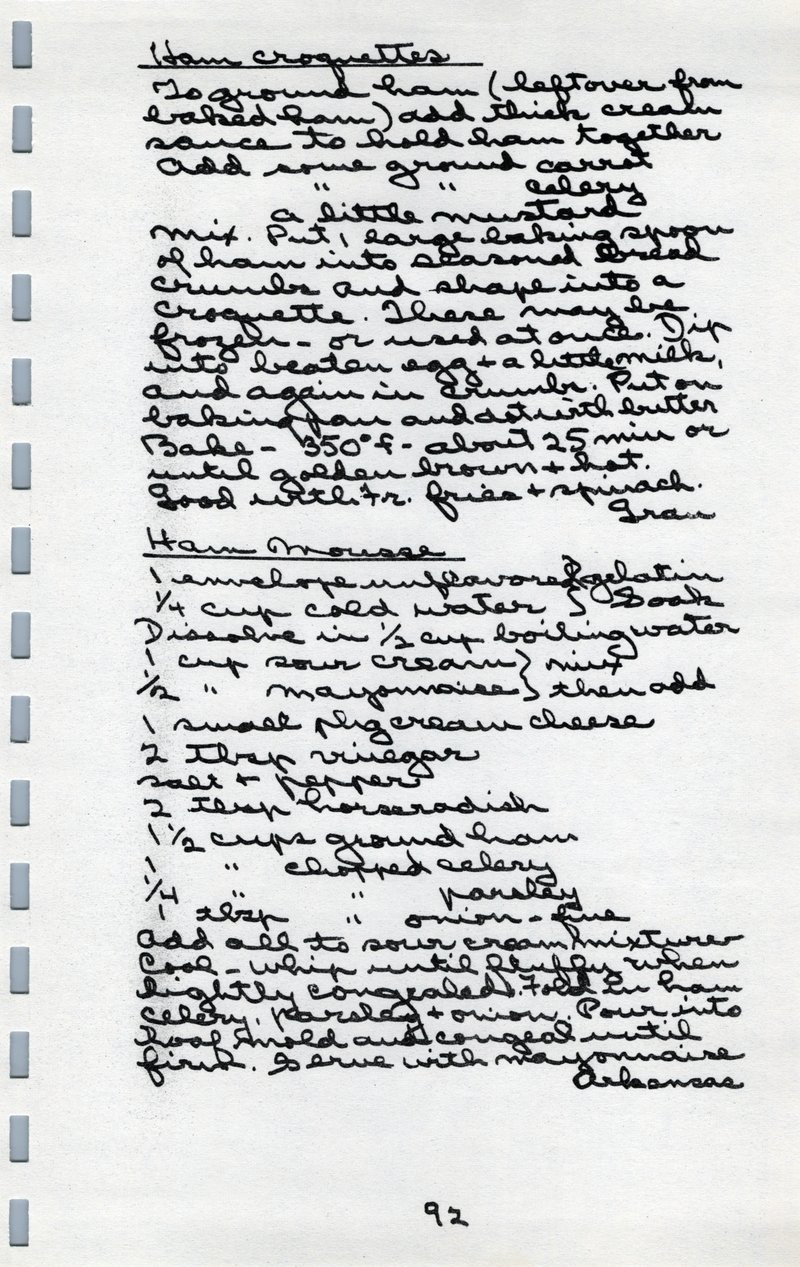 Ham Croquettes
To ground ham (leftover from
baked ham) add thick cream
sauce to hold ham together
Add some ground carrot
" " celery
a little mustard
Mix. Put 1 large baking spoon
of ham into seasoned bread
crumbs and shape into a
croquette. These may be
frozen - or used at once. Dip
into beaten egg + a little milk,
and again in crumbs. Put on
baking pan and dot with butter
Bake - 350° f - about 25 min or
until golden brown + hot.
Good with Fr. fries + spinach.
Gran
Ham Mousse
1 envelope unflavored } gelatin
1/4 cup cold water } Soak
Dissolve in 1/2 cup boiling water
1 cup sour cream } mix
1/2 " mayonnaise } then add
1 small pkg cream cheese
2 tbsp vinegar
salt + pepper
2 tbsp horseradish
1 1/2 cups ground ham
1 " chopped celery
1/4 " " parsley
1 tbsp " onion - fine
Add all to sour cream mixture
Cool - whip until fluffy when
lightly congealed. Fold in ham
celery, parsley + onion. Pour into
loaf mold and congeal until
firm. Serve with mayonnaise
Arkansas
92